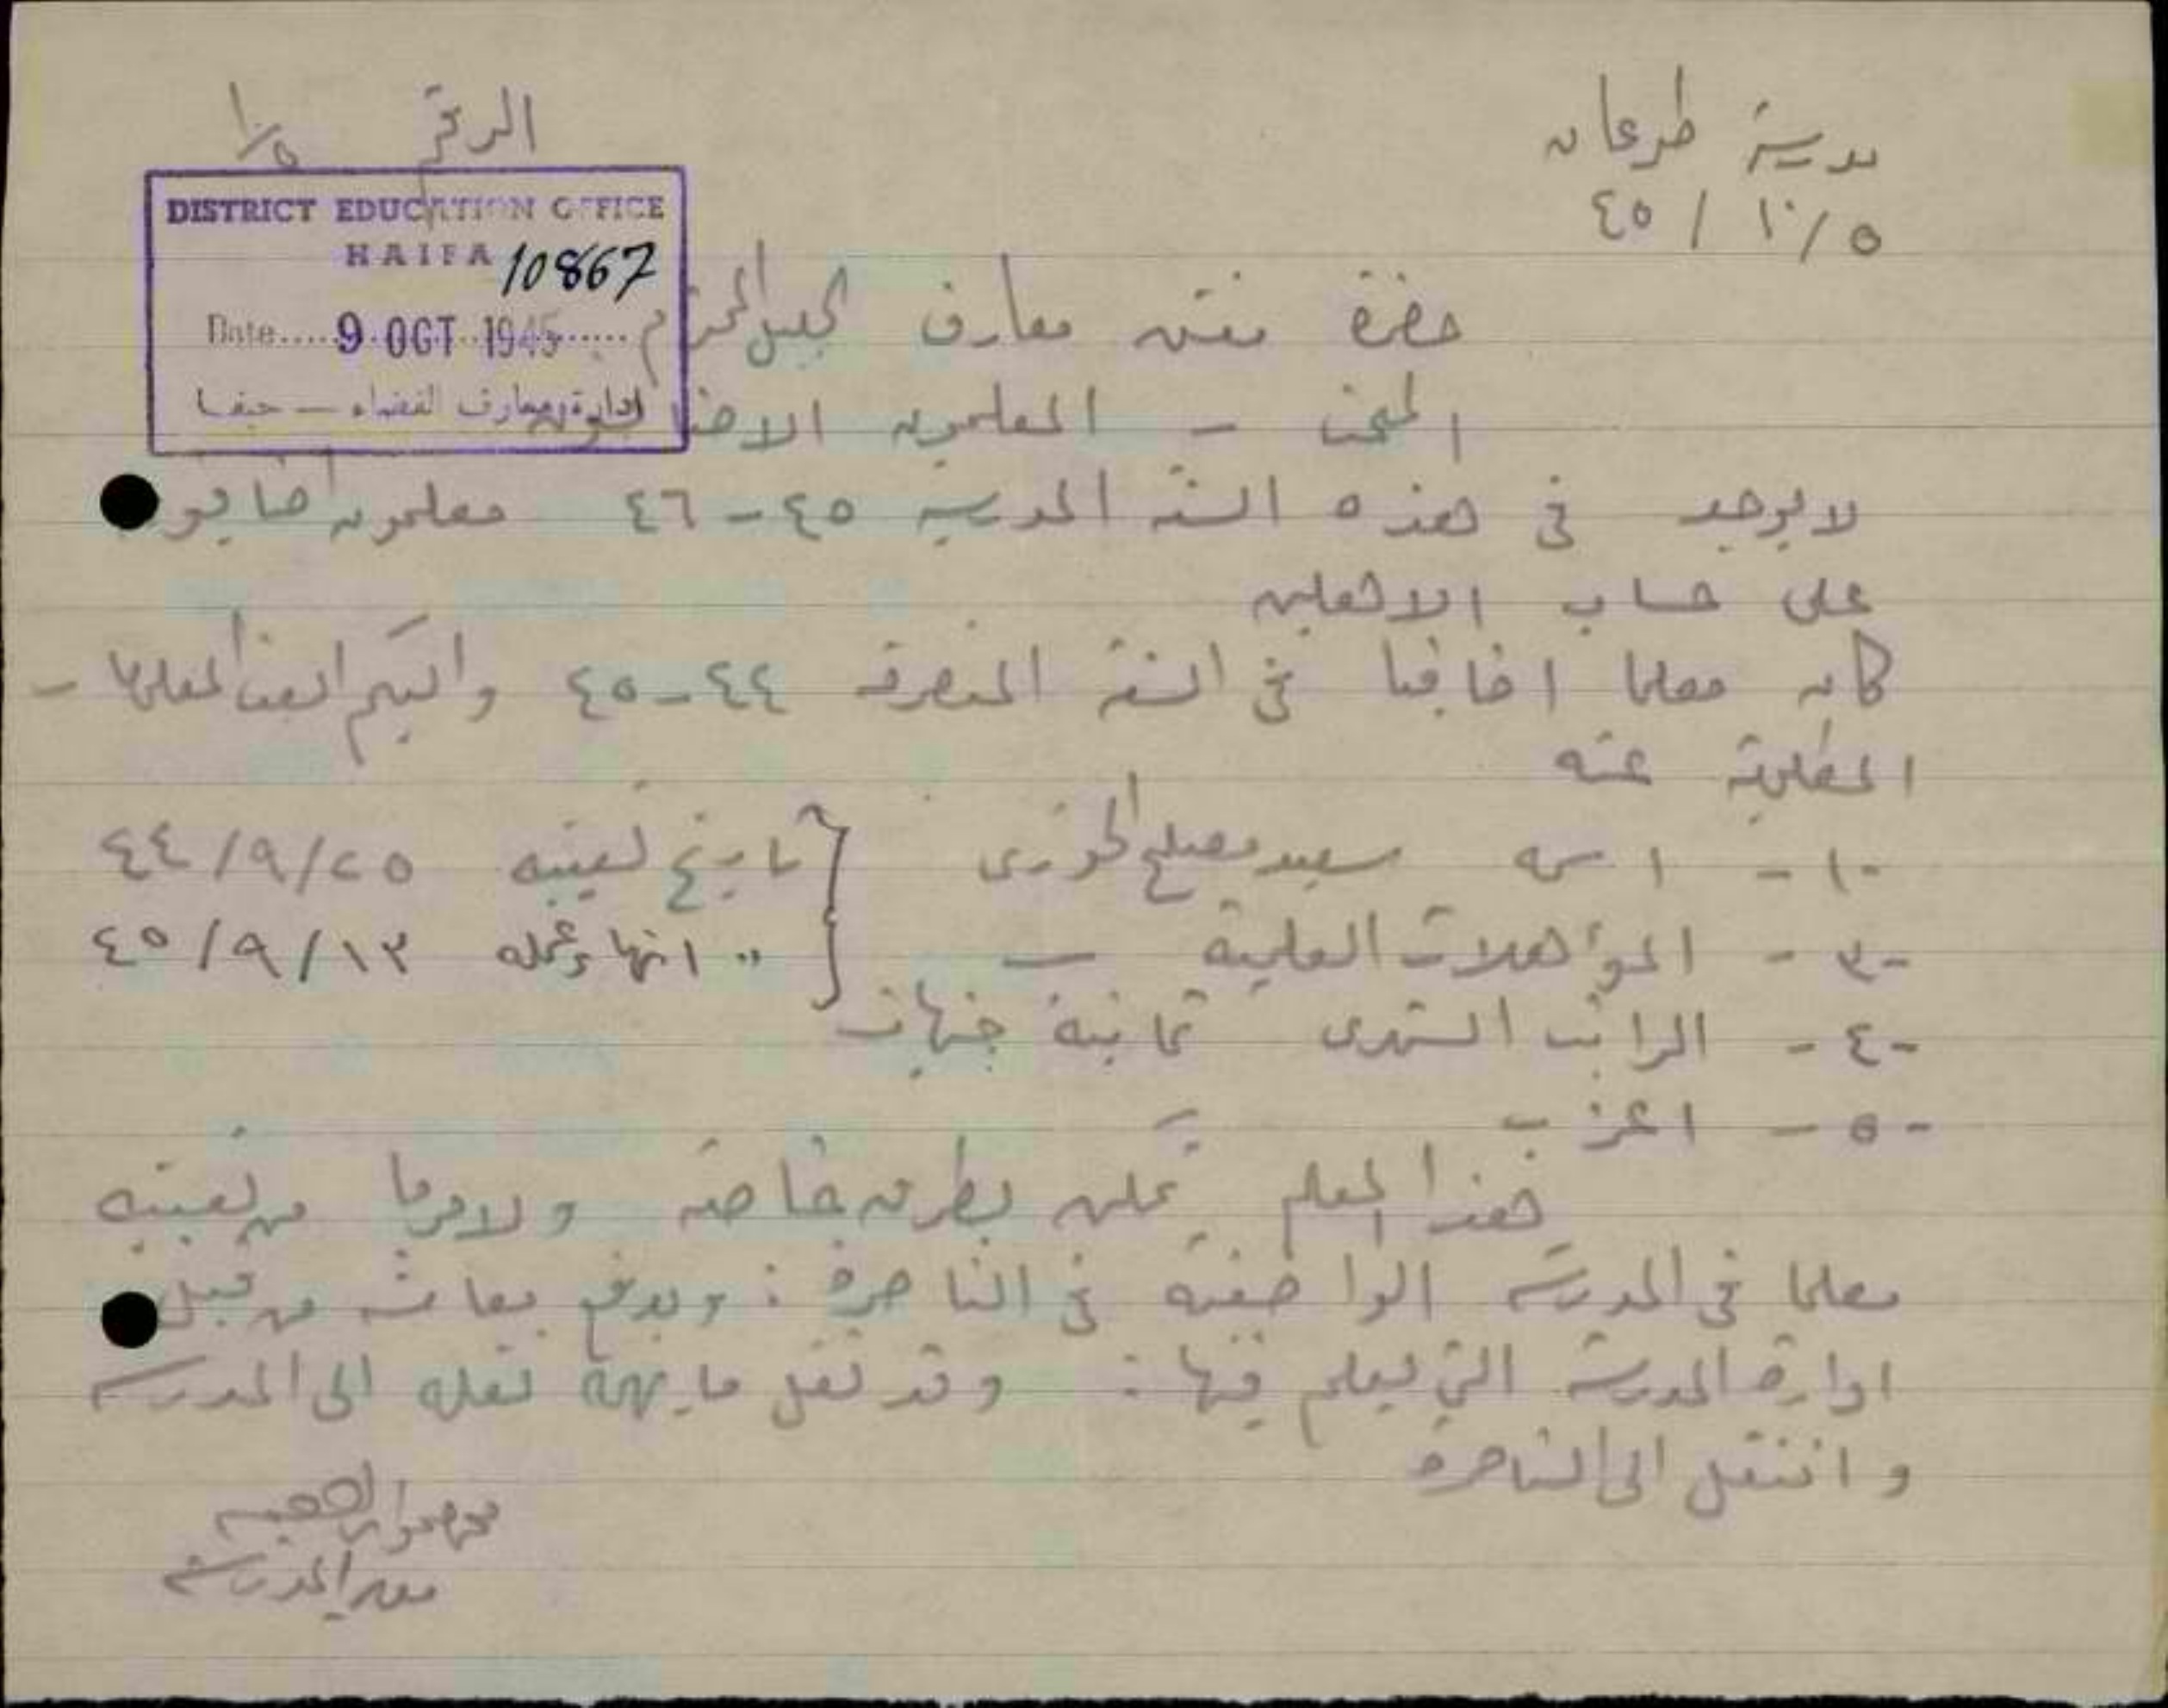 مدرسة طرعان
الرقم ١/٥
٤٥ / ١٠/٥
DISTRICT EDUCATION OFFICE
HAIFA 10867
Date.....9 OCT 1945......
ادارة معارف القضاء — حيفا
حضرة مفتش معارف الجليل المحترم
المبحث - المعلمون الاضافيون
لا يوجد في هذه السنة المدرسية ٤٥-٤٦ معلمون اضافيون
على حساب الاهلين
كان معلما اضافيا في السنة المنصرفة ٤٤-٤٥ واليكم ايضا المعلومات -
المطلوبة عنه
-١- اسمه سعيد مصلح الخوري
تاريخ تعيينه ٤٤/٩/٢٥
-٣- المؤهلات العلمية —
" انهاء عمله ٤٥/٩/١٣
-٤- الراتب الشهري ثمانية جنيهات
-٥- اعزب
هذا المعلم تمكن بطرق خاصة من تعيينه
معلما في المدرسة في الناصرة : ويدفع معاشه من قبل
ادارة المدرسة التي يعلم فيها : وقد نقل ما يهمه نقله الى المدرسة
وانتقل الى الناصرة
مدير المدرسة